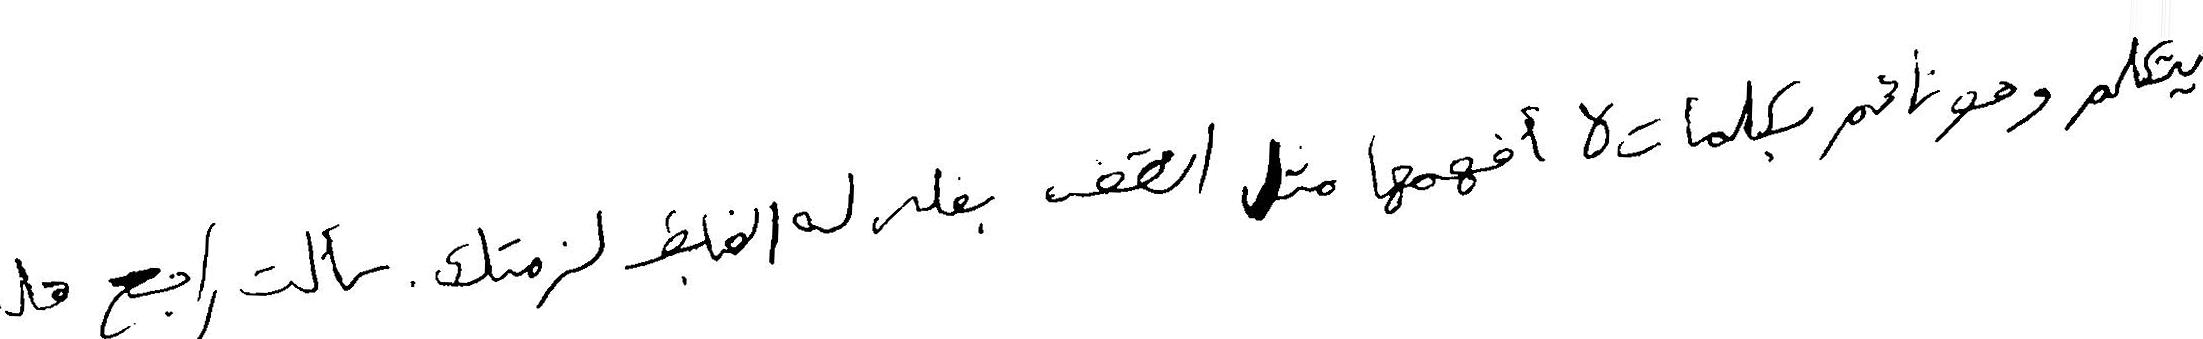 يتكلم وهو نائم بكلمات لا أفهمها مثل القصف بغله له الضابط لزمتك. سألت راجح هل